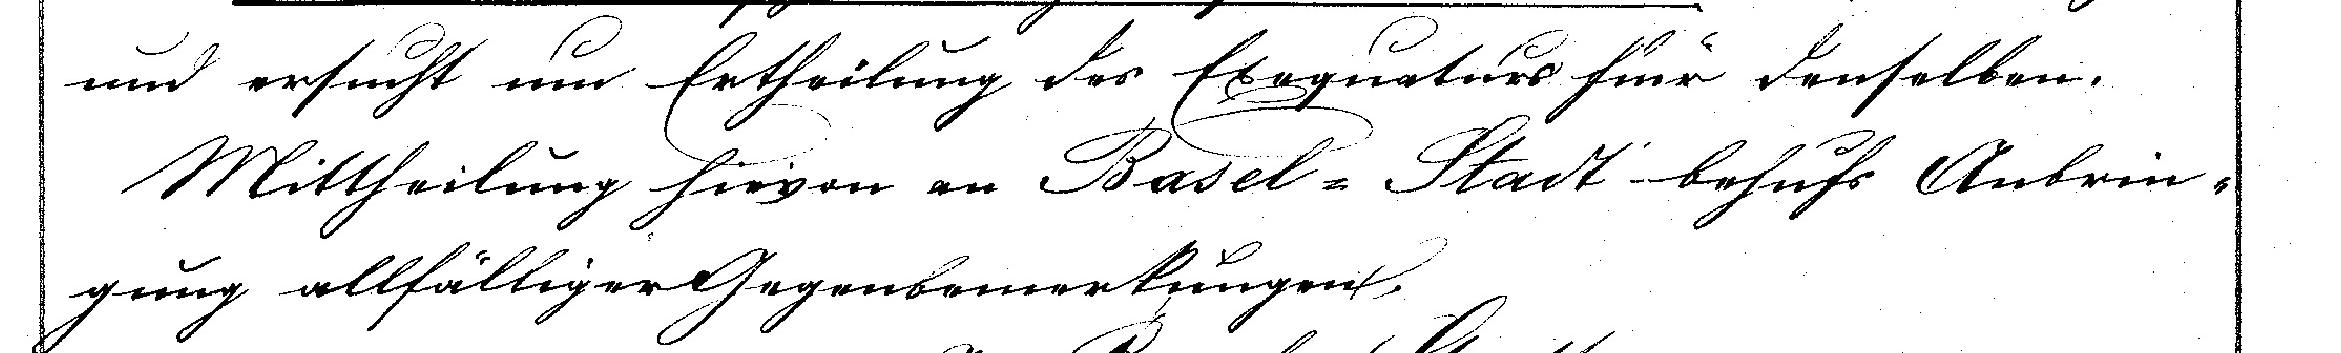 und ersucht um Ertheilung des Exequaturs für denselben.
Mittheilung hievon an Basel=Stadt behufs Anbrin-
gung allfälliger Gegenbemerkungen.